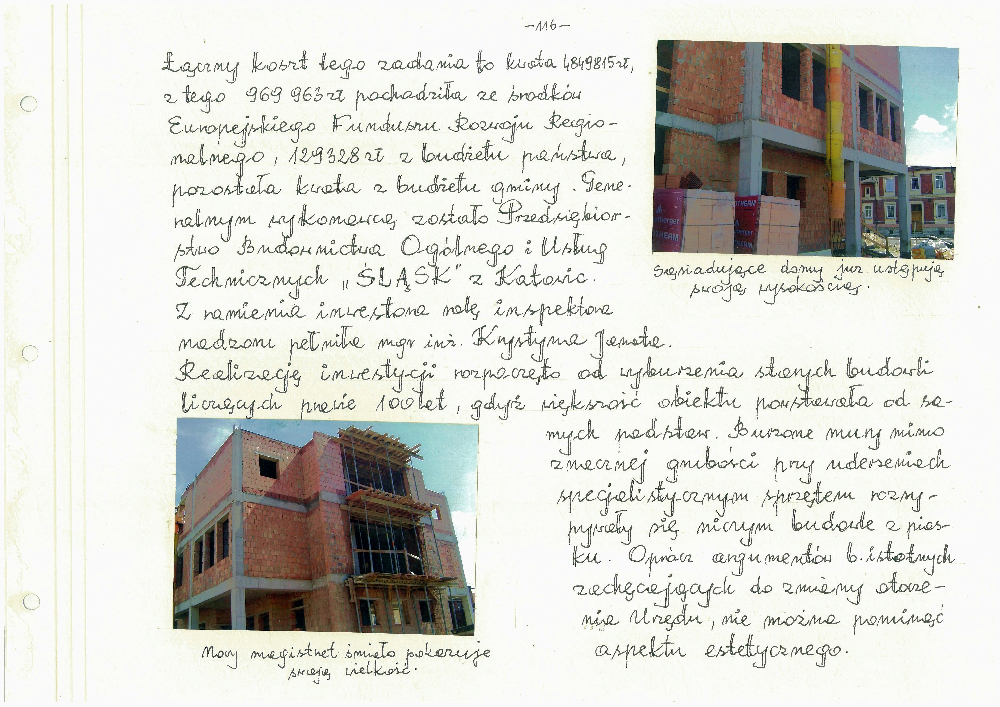 -116-
Łączny koszt tego zadania to kwota 4849815zł,
z tego 969 963zł pochodziła ze środków
Europejskiego Funduszu Rozwoju Regio-
nalnego, 129328zł z budżetu państwa,
pozostała kwota z budżetu gminy. Gene-
ralnym wykonawcą zostało Przedsiębior-
stwo Budownictwa Ogólnego i Usług
Technicznych „ŚLĄSK" z Katowic.
Z ramienia inwestora rolę inspektora
nadzoru pełniła mgr inż. Krystyna Janota.
Realizację inwestycji rozpoczęto od wyburzenia starych budowli
liczących prawie 100 lat, gdyż większość obiektu powstawała od sa-
mych podstaw. Burzone mury mimo
znacznej grubości przy uderzeniach
specjalistycznym sprzętem rozsy-
pywały się niczym budowle z pias-
ku. Oprócz argumentów b. istotnych
zachęcających do zmiany otocze-
nia Urzędu, nie można pominąć
aspektu estetycznego.
Sąsiadujące domy już ustępują
swoją wysokością.
Nowy magistrat śmiało pokazuje
swoją wielkość.